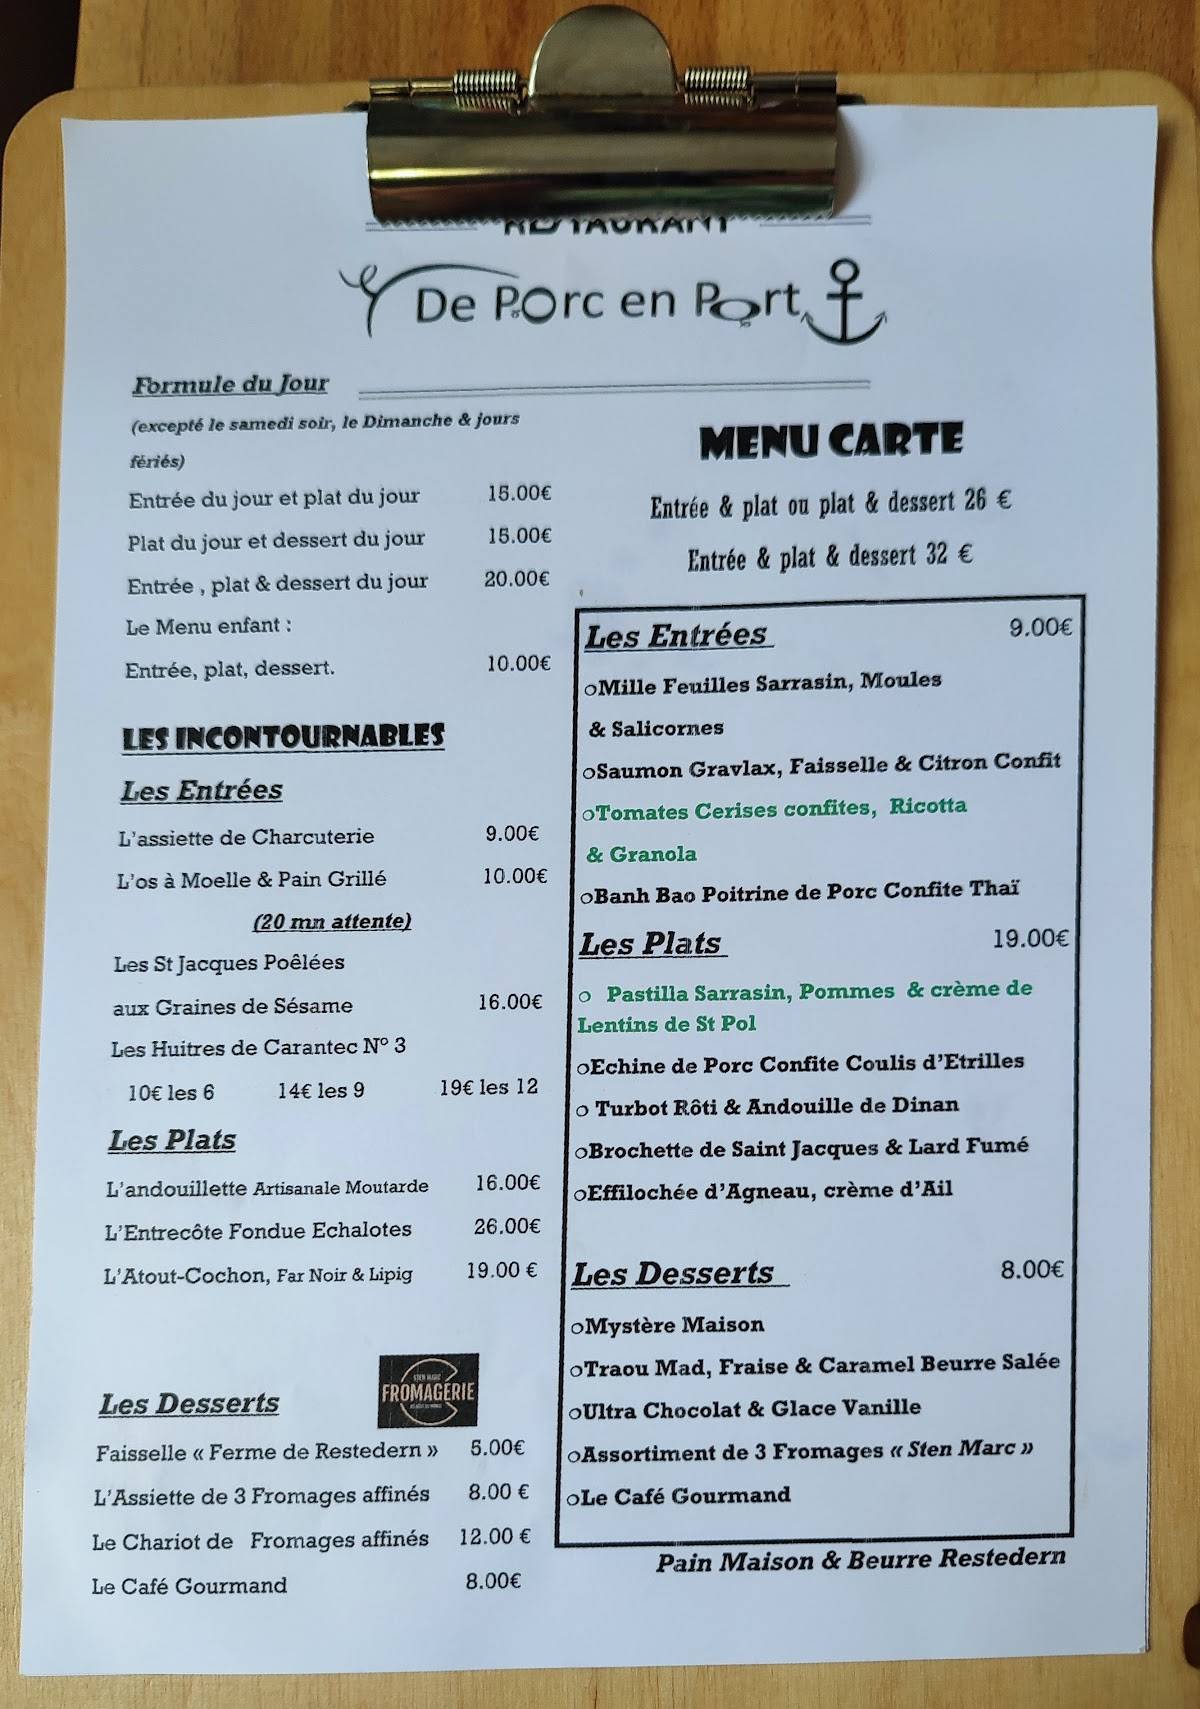 RESTAURANT
De Porc en Port
Formule du Jour
(excepté le samedi soir, le Dimanche & jours
fériés)
Entrée du jour et plat du jour 15.00€
Plat du jour et dessert du jour 15.00€
Entrée , plat & dessert du jour 20.00€
Le Menu enfant :
Entrée, plat, dessert. 10.00€
LES INCONTOURNABLES
Les Entrées
L'assiette de Charcuterie 9.00€
L'os à Moelle & Pain Grillé 10.00€
(20 mn attente)
Les St Jacques Poêlées
aux Graines de Sésame 16.00€
Les Huitres de Carantec N° 3
10€ les 6 14€ les 9 19€ les 12
Les Plats
L'andouillette Artisanale Moutarde 16.00€
L'Entrecôte Fondue Echalotes 26.00€
L'Atout-Cochon, Far Noir & Lipig 19.00 €
Les Desserts
STEN MARC
FROMAGERIE
Faisselle « Ferme de Restedern » 5.00€
L'Assiette de 3 Fromages affinés 8.00 €
Le Chariot de Fromages affinés 12.00 €
Le Café Gourmand 8.00€
MENU CARTE
Entrée & plat ou plat & dessert 26 €
Entrée & plat & dessert 32 €
Les Entrées 9.00€
○Mille Feuilles Sarrasin, Moules
& Salicornes
○Saumon Gravlax, Faisselle & Citron Confit
○Tomates Cerises confites, Ricotta
& Granola
○Banh Bao Poitrine de Porc Confite Thaï
Les Plats 19.00€
○ Pastilla Sarrasin, Pommes & crème de
Lentins de St Pol
○Echine de Porc Confite Coulis d'Etrilles
○ Turbot Rôti & Andouille de Dinan
○Brochette de Saint Jacques & Lard Fumé
○Effilochée d'Agneau, crème d'Ail
Les Desserts 8.00€
○Mystère Maison
○Traou Mad, Fraise & Caramel Beurre Salée
○Ultra Chocolat & Glace Vanille
○Assortiment de 3 Fromages « Sten Marc »
○Le Café Gourmand
Pain Maison & Beurre Restedern